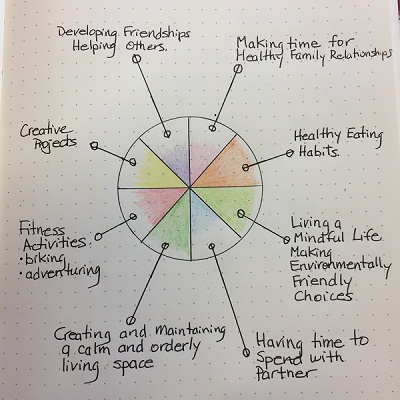 Developing Friendships
Helping Others.
Making time for
Healthy Family Relationships
Healthy Eating
Habits.
Living a
Mindful Life
Making
Environmentally
Friendly
Choices
Having time to
Spend with
Partner
Creating and Maintaining
a calm and orderly
living space
Fitness
Activities.
• biking
• adventuring
Creative
Projects